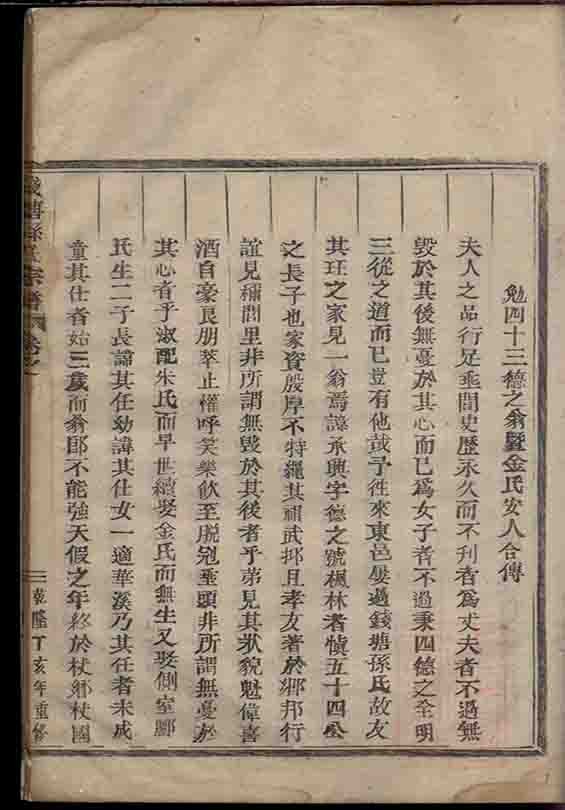 勉四十三德之翁暨金氏安人合傳
夫人之品行足垂閭史歷永久而不刋者為丈夫者不過無
毀於其後無憂於其心而已為女子者不過秉四德之全明
三從之道而已豈有他哉予徃來東邑屢過錢塘孫氏故友
其玨之家見一翁焉諱承興字德之號楓林者慎五十四公
之長子也家資殷厚不特繩其祖武抑且孝友著於鄉邦行
誼見稱閭里非所謂無毀於其後者乎第見其狀貌魁偉喜
酒自豪良朋萃止懽呼笑樂飲至脫冠垂頭非所謂無憂於
其心者乎淑配朱氏而早世續娶金氏而無生又娶側室
氏生二子長諱其任幼諱其仕女一適華溪乃其任者未成
童其仕者始三歲而翁郎不能強天假之年終於杖鄉杖國
錢塘孫氏宗譜 卷之
乾隆丁亥年重修